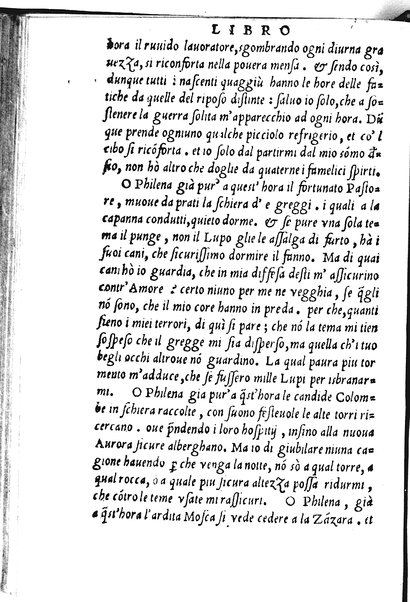 LIBRO
hora il ruuido lauoratore, sgombrando ogni diurna gra
uezza, si riconforta nella pouera mensa. & sendo così,
dunque tutti i nascenti quaggiù hanno le hore delle fa-
tiche da quelle del riposo distinte: saluo io solo, che a so-
stenere la guerra solita m'apparecchio ad ogni hora. Dũ
que prende ogniuno qualche picciolo refrigerio, et co'l
cibo si ricõforta. et io solo dal partirmi dal mio sõmo
sio, non hò altro che doglie da quaterne i famelici spirti.
O Philena già pur'a quest'hora il fortunato Pasto-
re, muoue da prati la schiera d'e greggi. i quali a la
capanna condutti, quieto dorme. & se pure vna sola te-
ma il punge, non il Lupo glie le assalga di furto, hà i
suoi cani, che sicurissimo dormire il fanno. Ma di quai
cani hò io guardia, che in mia diffesa desti m'assicurino
contr'Amore? certo niuno per me ne vegghia, se q̃gli
nó sono, che il mio core hanno in preda. per che, quanti
sieno i miei terrori, di quì si pare; che nó la tema mi tien
sospeso che il gregge mi sia disperso, ma quella ch'i tuo
begli occhi altroue nó guardino. La qual paura piu tor
mento m'adduce, che se fussero mille Lupi per isbranar-
mi. O Philena già pur a q̃st'hora le candide Colom-
be in schiera raccolte, con suono festeuole le alte torri ri-
cercano. oue p̃ndendo i loro hospitij, insino alla nuoua
Aurora sicure alberghano. Ma io di giubilare niuna ca-
gione hauendo ꝑ che venga la notte, nó sò a qual torre, a
qual rocca, ò a quale piu sicura altezza possa ridurmi,
che cõtro le teme vsate mi rassicuri. O Philena, già
a q̃st'hora l'ardita Mosca si vede cedere a la Zázara. et